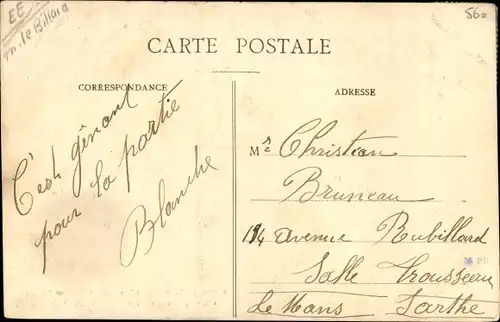 EE
Th. le Billard
560
CARTE POSTALE
CORRESPONDANCE
ADRESSE
C'est gênant
pour la partie
Blanche
Mr Christian
Bruneau
194 Avenue Rubillard
Salle Trousseau
Le Mans Sarthe